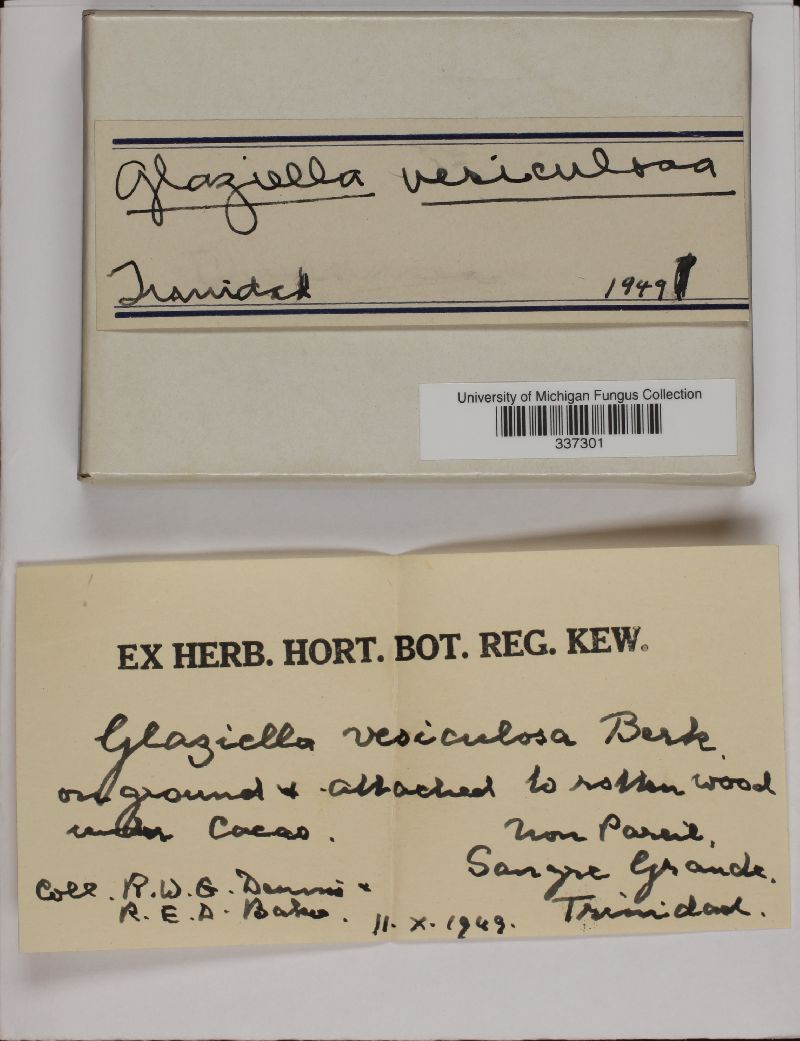 Glaziella vesiculosa
Trinidad 1949
University of Michigan Fungus Collection
337301
EX HERB. HORT. BOT. REG. KEW.
Glaziella vesiculosa Berk.
on ground & attached to rotten wood
under Cacao. Non Pareil,
Sangre Grande.
Coll. R.W.G. Dennis &
R.E.D. Baker. 11.X.1949. Trinidad.